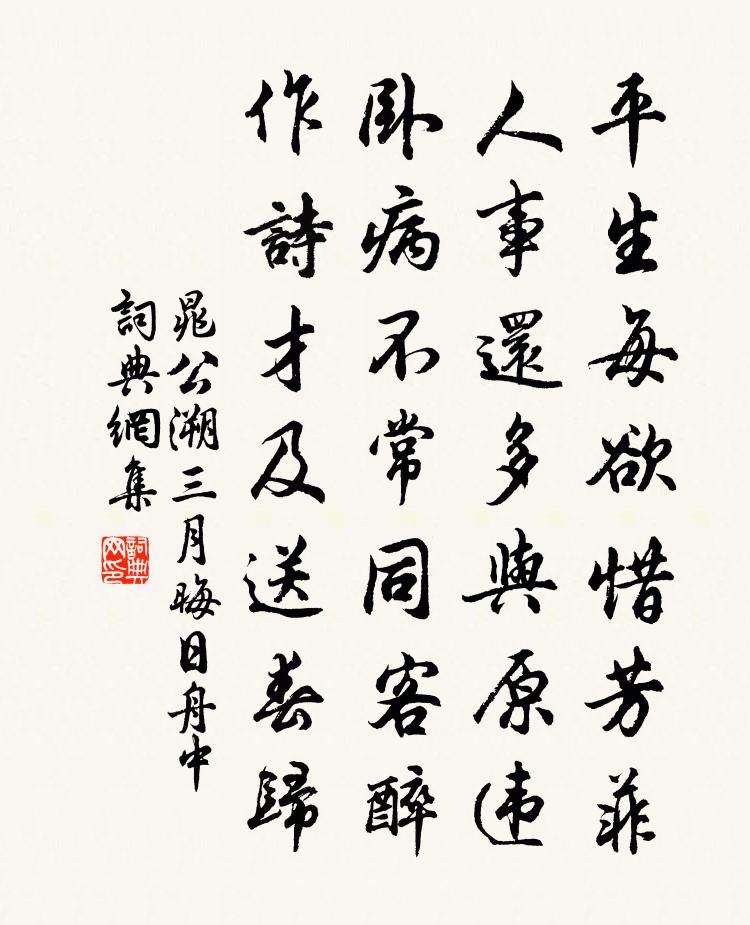 平生每欲惜芳菲
人事還多與原違
臥病不常同客醉
作詩才及送春歸
晁公溯三月晦日舟中
詞典網集
詞典网印